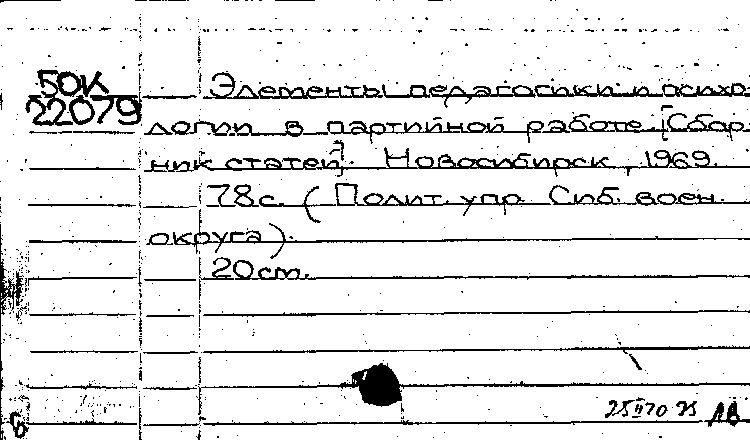 50К
22079
Элементы педагогики и психо-
логии в партийной работе. [Сбор-
ник статей]. Новосибирск, 1969.
78с. (Полит. упр. Сиб. воен.
округа).
20см.
25 II 70